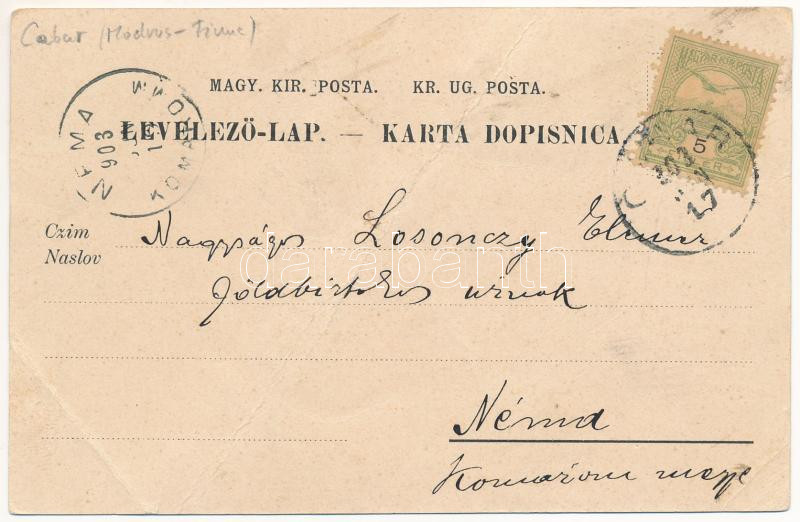 Cabar (Modrus-Fiume)
MAGY. KIR. POSTA. KR. UG. POSTA.
LEVELEZÖ-LAP. — KARTA DOPISNICA
MAGYAR KIR. POSTA
5
903
17
NEMA
903
KOMAROM
Czim
Naslov
Nagyságos Losonczy Elemér
földbirtokos úrnak
darabanth
Néma
Komárom megye